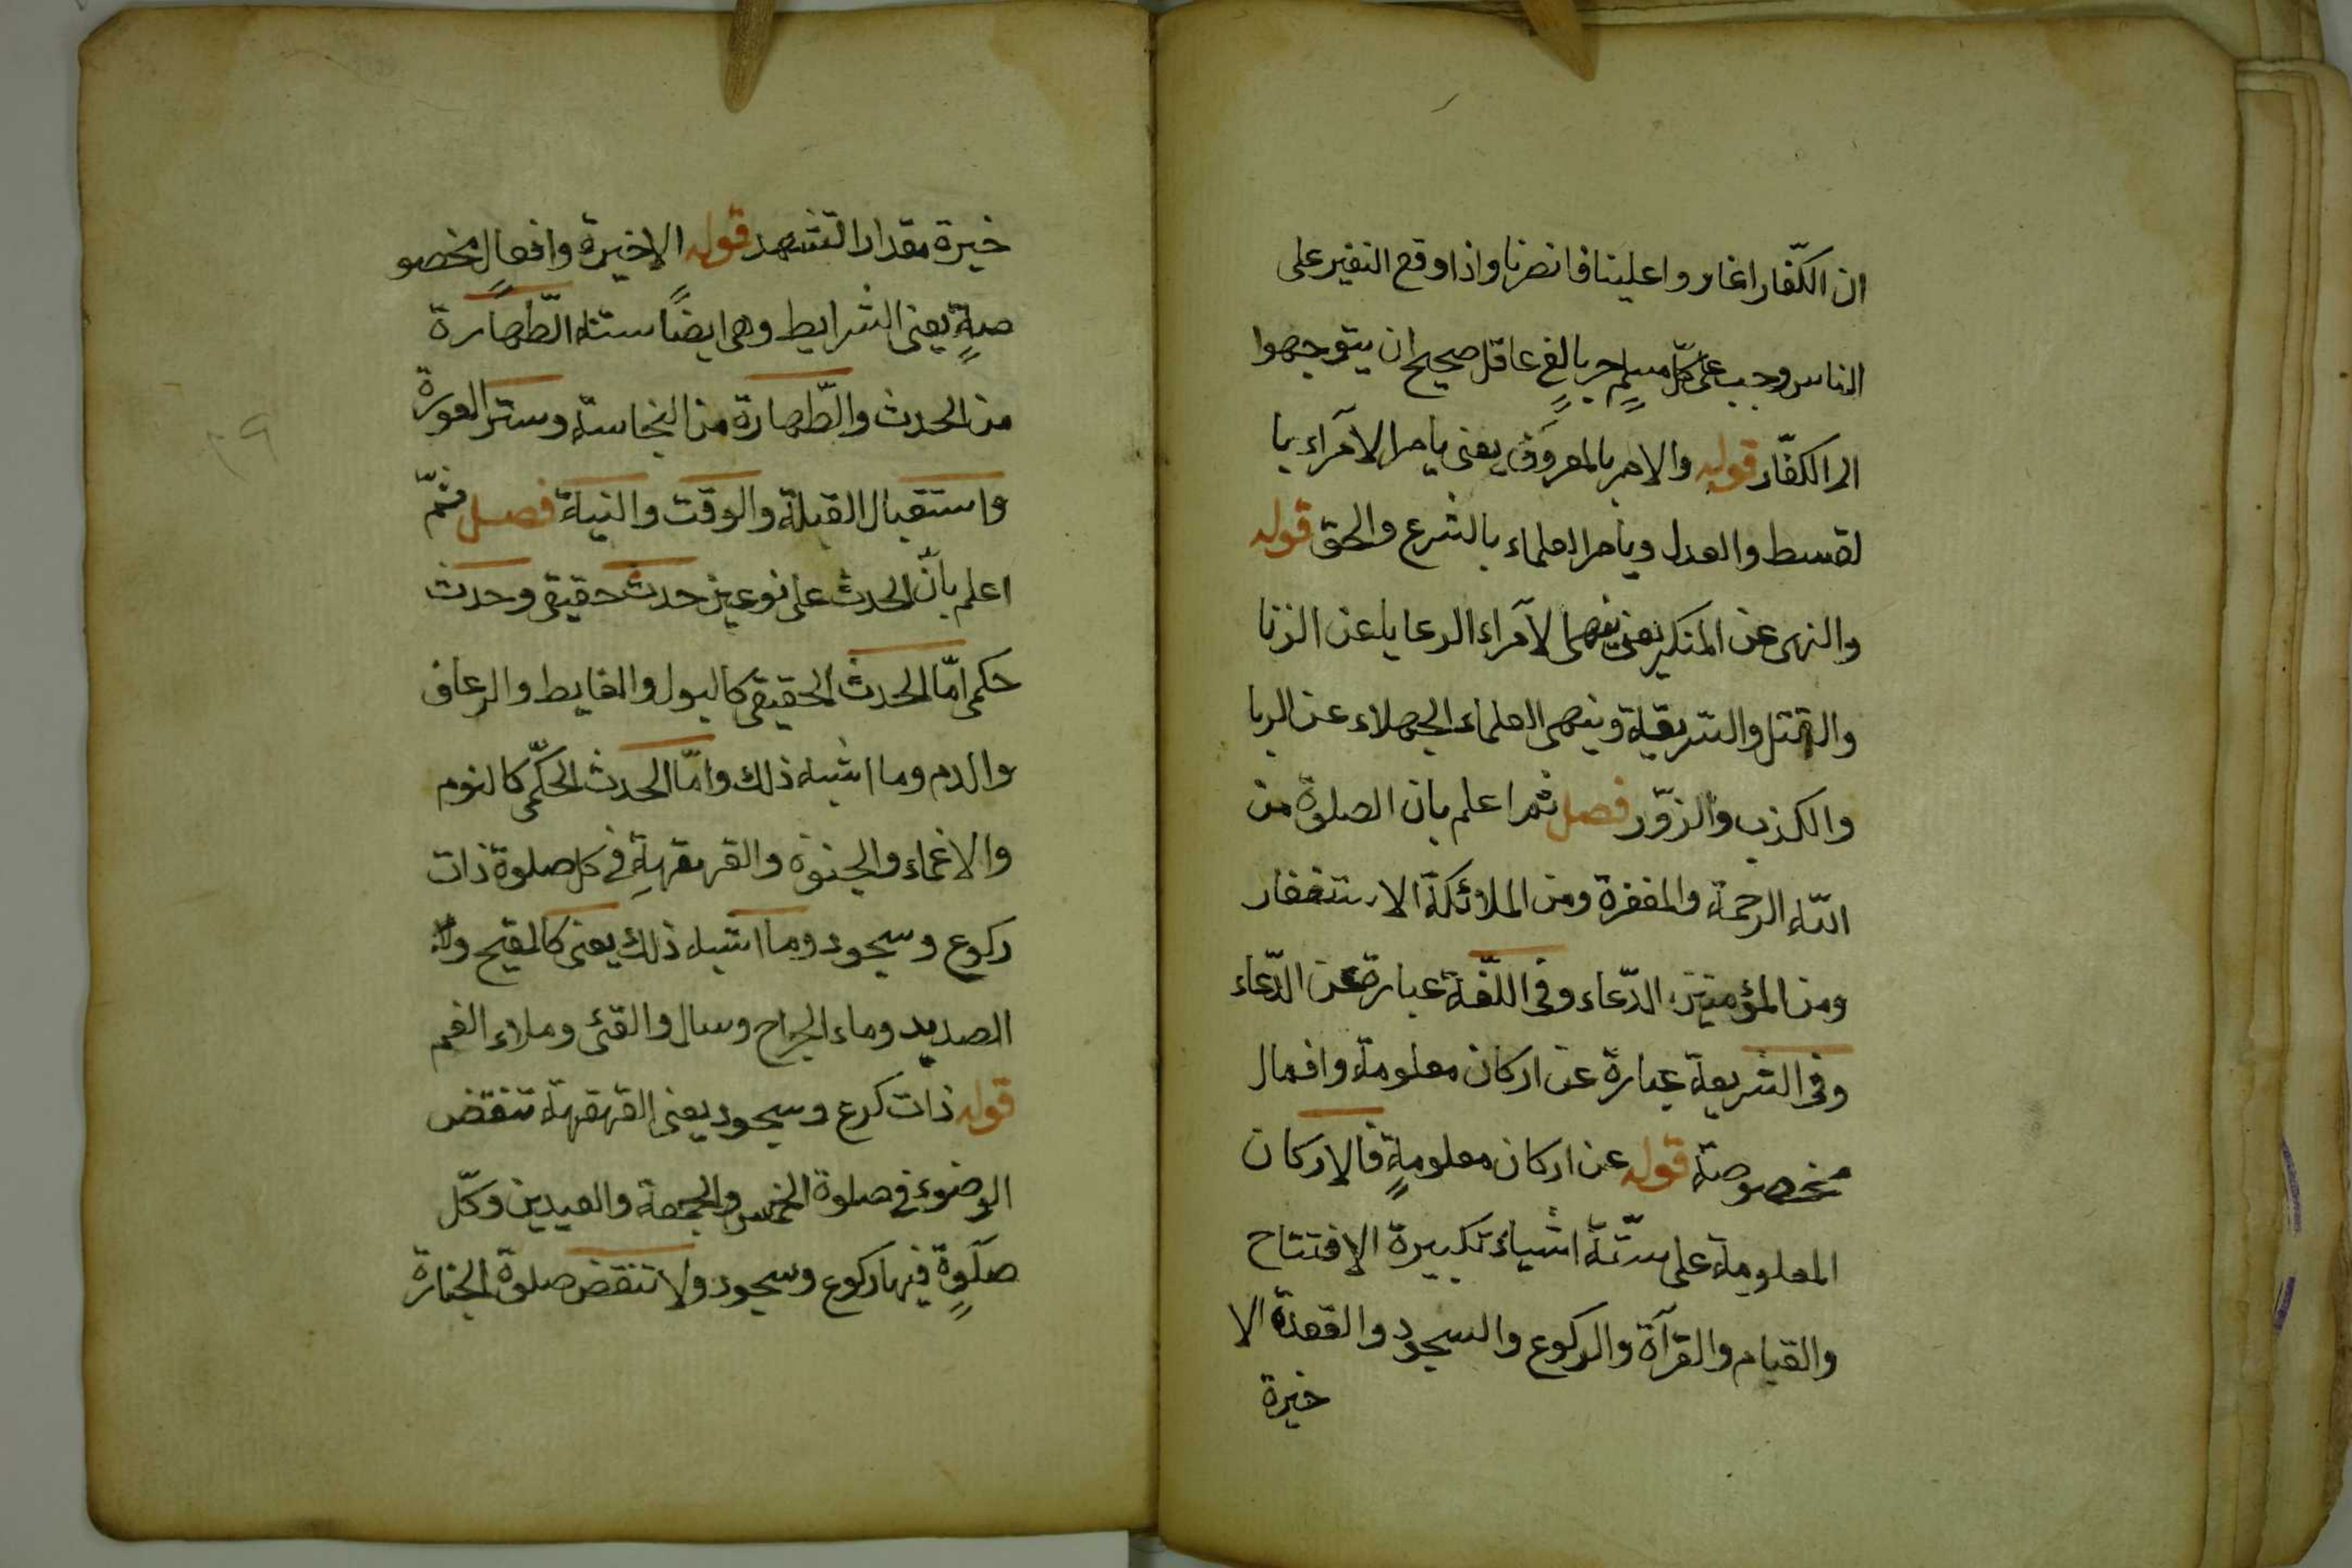 ان الكفّار اغاروا علينا فانصرنا واذا وقع النفير على
الناس وجب على كلّ مسلمٍ حرٍ بالغٍ عاقل صحيح ان يتوجهوا
الى الكفّار قوله والامر بالمعروف يعنى يامر الامرآء با
لقسط والعدل ويامر العلماء بالشرع والحق قوله
والنهى عن المنكر يعنى ينهى الامرآء الرعاية عن الزنا
والقتل والسرقة وينهى العلماء الجهلاء عن الربا
والكذب والزوّر فصل ثم اعلم بان الصلوة من
الله الرحمة والمغفرة ومن الملائكة الاستغفار
ومن المؤمنين الدّعاء وفى اللّغة عبارة عن الدّعاء
وفى الشريعة عبارة عن اركان معلومة وافعال
مخصوصة قوله عن اركان معلومةٍ فالاركان
المعلومة على ستّة اشياء تكبيرة الافتتاح
والقيام والقرآة والركوع والسجود والقعدة الا
خيرة
خيرة مقدار التشهد قوله الاخيرة وافعالٍ مخصو
صةٍ يعنى الشرايط وهى ايضاً ستة الطّهارة
من الحدث والطّهارة من النجاسة وستر العورة
واستقبال القبلة والوقت والنية فصل ثمّ
اعلم بأنّ الحدث على نوعين حدث حقيقى وحدث
حكمى امّا الحدث الحقيقى كالبول والغايط والرعاف
والدم وما اشبه ذلك وامّا الحدث الحكمّى كالنوم
والاغماء والجنون والقهقهةِ فى كل صلوة ذات
ركوع وسجود وما اشبه ذلك يعنى كالقيح و
الصديد وماء الجراح وسال والقئ وملاء الفم
قوله ذات كرع وسجود يعنى القهقهة تنقض
الوضوء فى صلوة الخمس والجمعة والعيدين وكلّ
صلوةٍ فيها ركوع وسجود ولا تنقض صلوة الجنازة